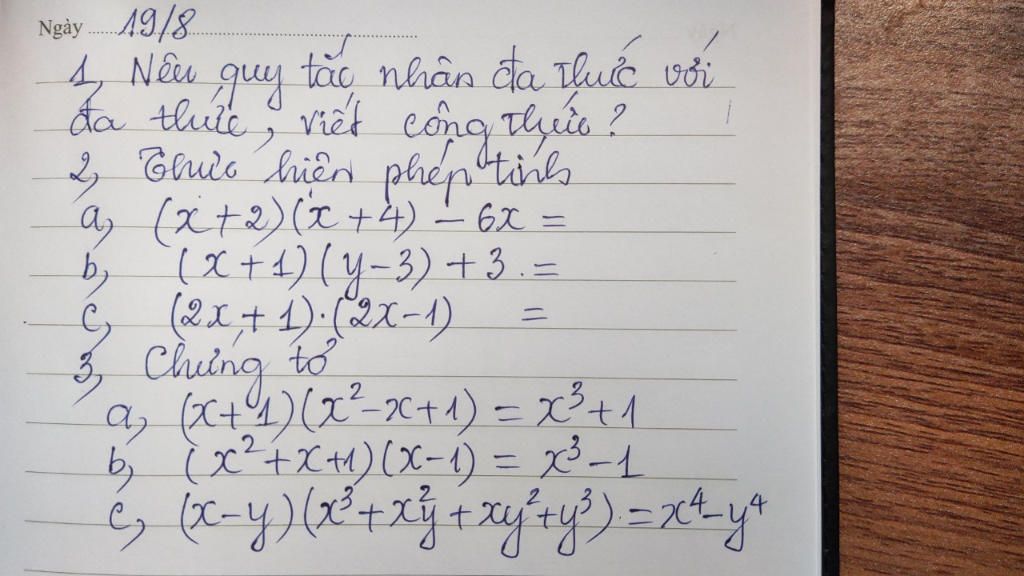 Ngày 19/8
1, Nêu quy tắc nhân đa thức với
đa thức, viết công thức?
2, Thực hiện phép tính
a, (x+2)(x+4) – 6x =
b, (x+1)(y–3)+3 =
c, (2x+1).(2x–1) =
3, Chứng tỏ
a, (x+1)(x²–x+1) = x³+1
b, (x²+x+1)(x–1) = x³–1
c, (x–y)(x³+x²y+xy²+y³) = x⁴–y⁴